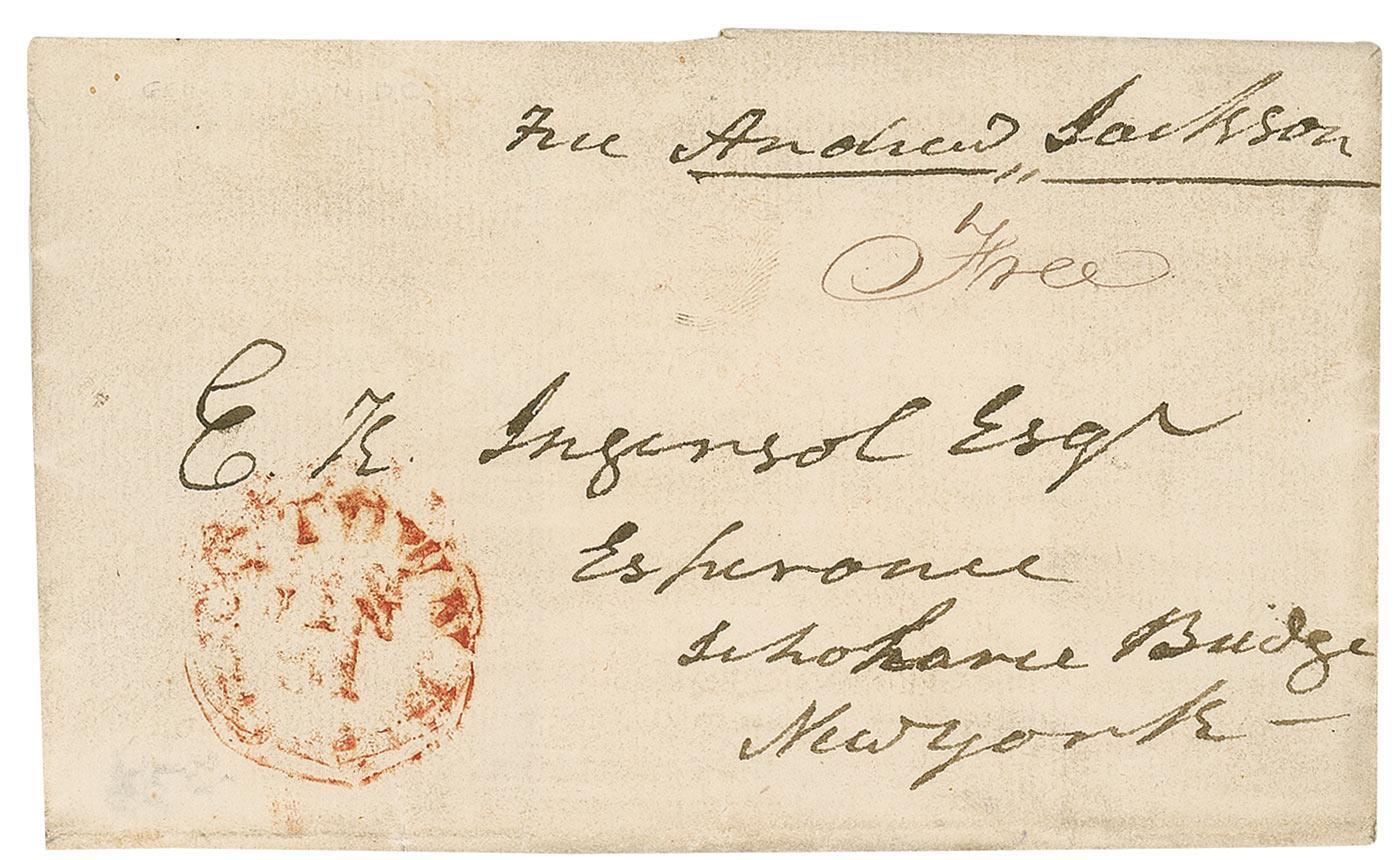 Free Andrew Jackson
Free
E. K. Ingersol Esqr
Esperance
Schoharie Bridge
New York —